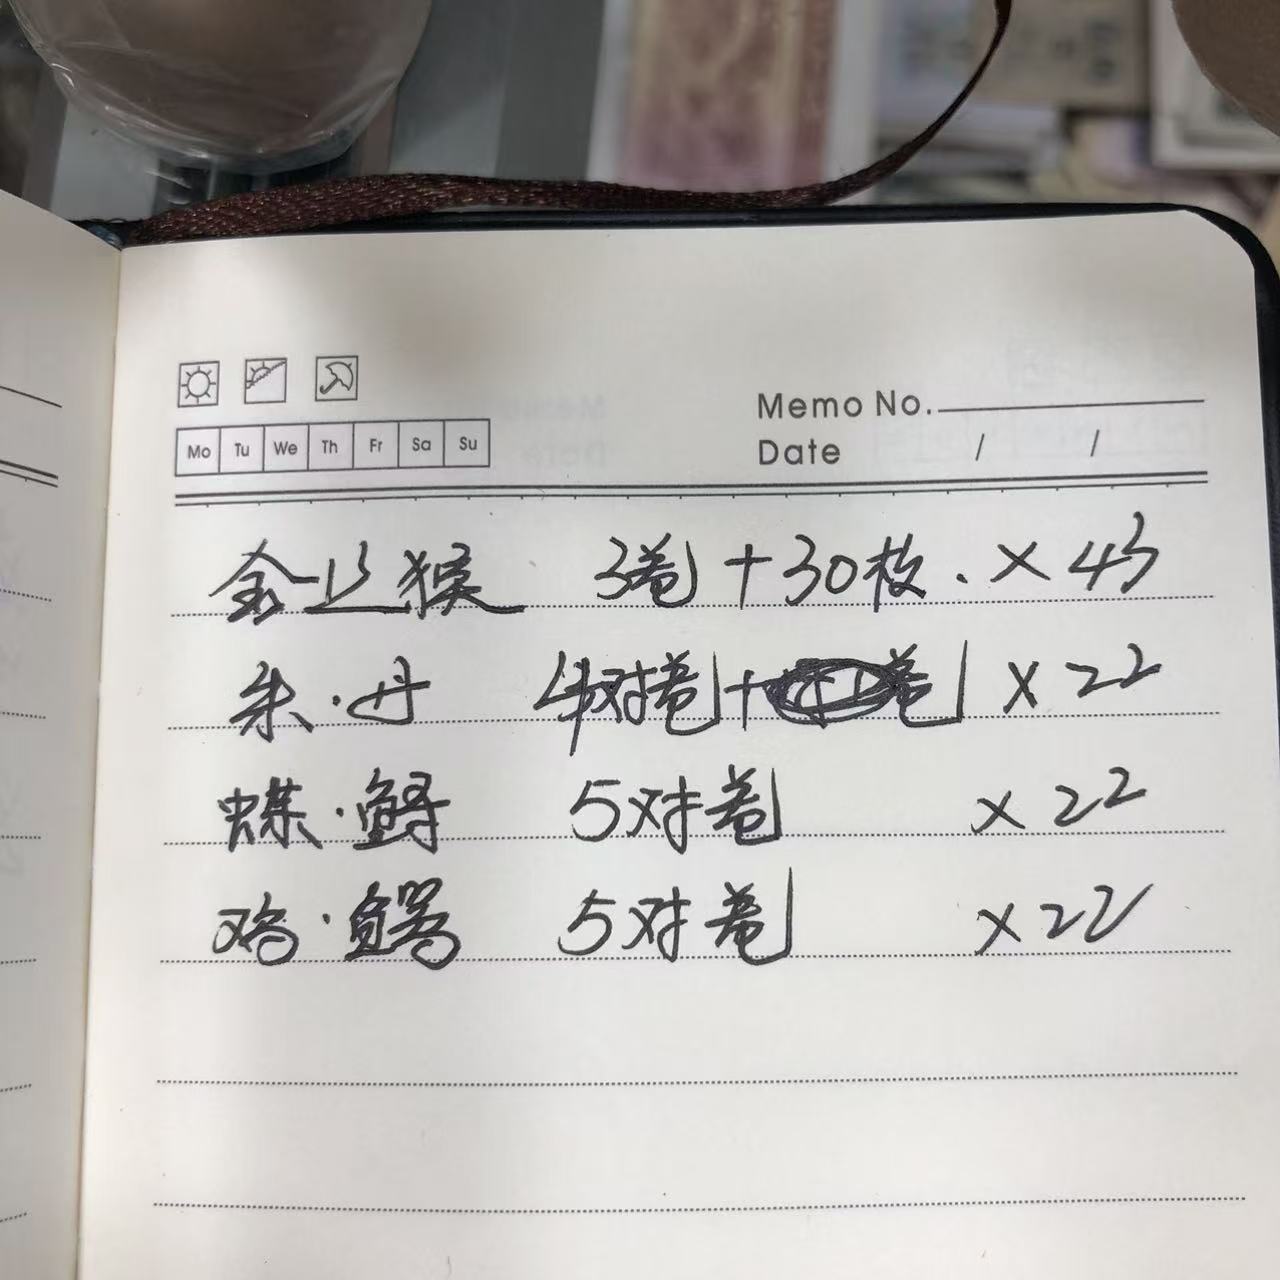 Mo Tu We Th Fr Sa Su
Memo No.
Date / /
金丝猴 3卷+30枚. ×43
朱·丹 4对卷+ 卷 ×22
蝶·鲟 5对卷 ×22
鸡·鳄 5对卷 ×22